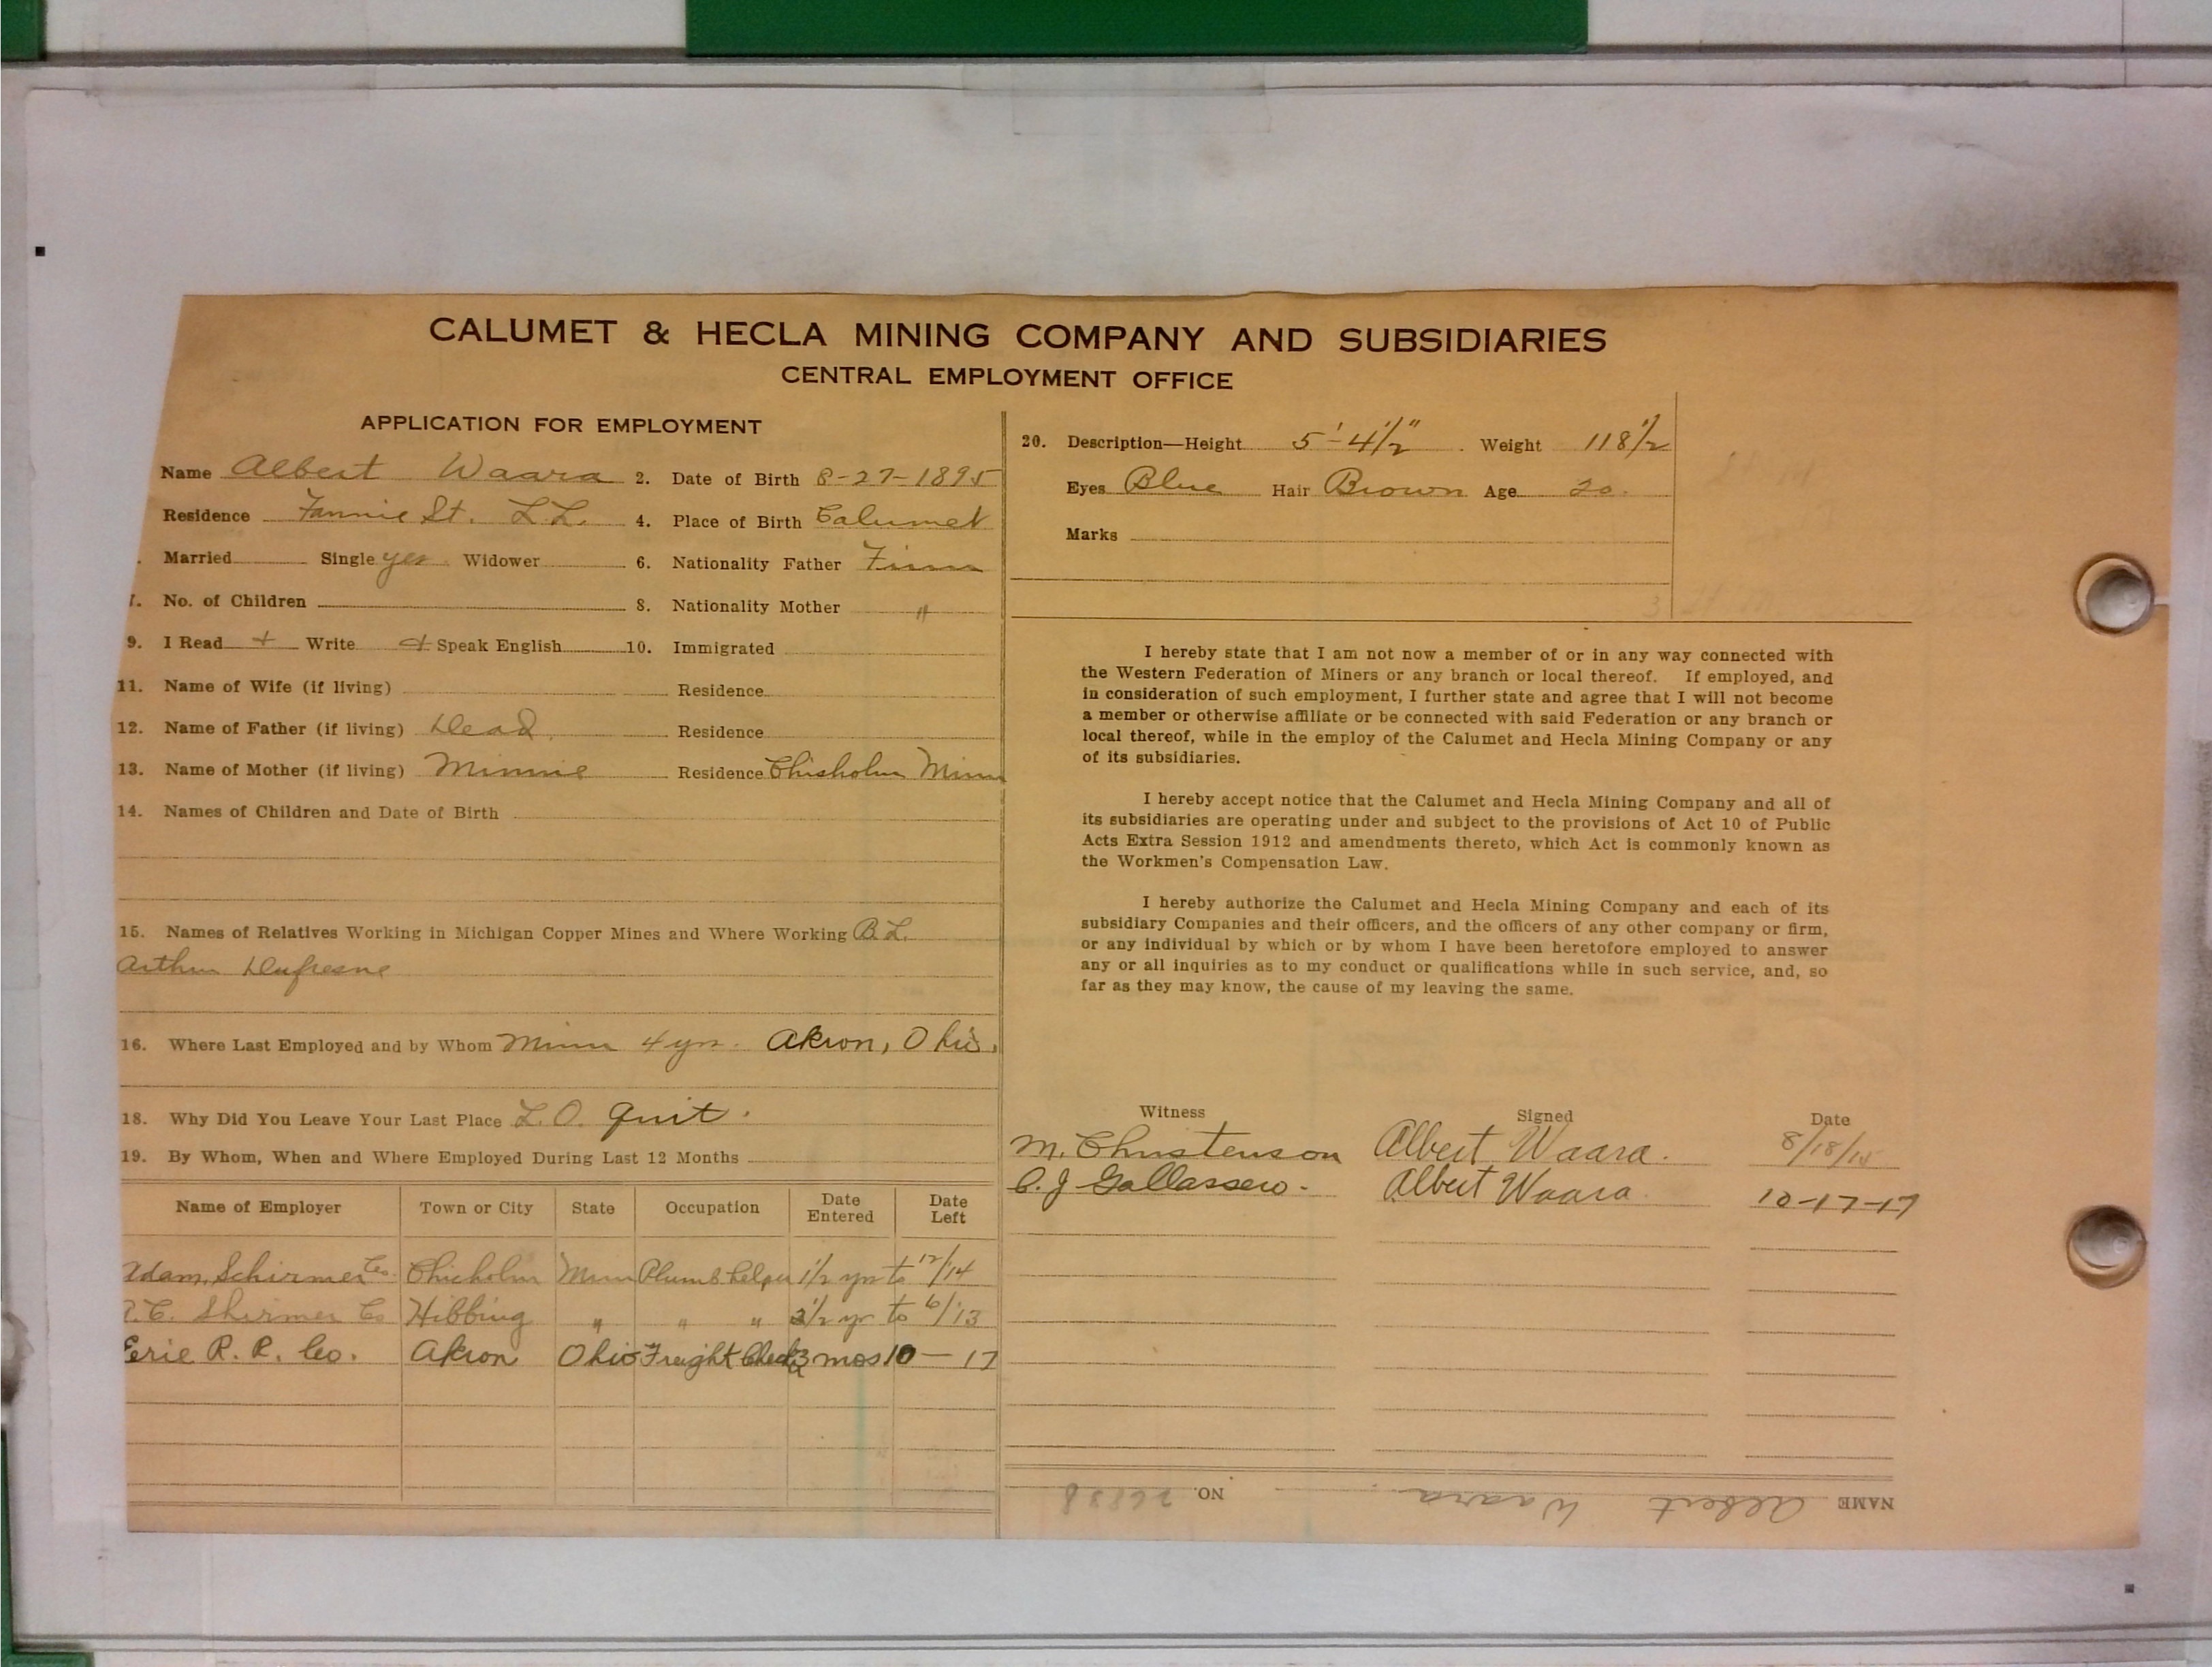 CALUMET & HECLA MINING COMPANY AND SUBSIDIARIES
CENTRAL EMPLOYMENT OFFICE
APPLICATION FOR EMPLOYMENT
Name Albert Waara 2. Date of Birth 8-27-1895
Residence Fannie St. L.L. 4. Place of Birth Calumet
. Married Single yes Widower 6. Nationality Father Finn
7. No. of Children 8. Nationality Mother "
9. I Read + Write + Speak English 10. Immigrated
11. Name of Wife (if living) Residence
12. Name of Father (if living) Dead Residence
13. Name of Mother (if living) Minnie Residence Chisholm Minn
14. Names of Children and Date of Birth
15. Names of Relatives Working in Michigan Copper Mines and Where Working B.L.
Arthur Dufresne
16. Where Last Employed and by Whom Minn 4 yrs. Akron, Ohio.
18. Why Did You Leave Your Last Place L.O. Quit.
19. By Whom, When and Where Employed During Last 12 Months
Name of Employer Town or City State Occupation Date Entered Date Left
Adam Schirmer Co. Chicholm Minn Plumb helper 1 1/2 yrs to 12/14
Shirmer Co Hibbing " " " 1/2 yr to 6/13
Erie R. R. Co. Akron Ohio Freight Check 3 mos 10 — 17
20. Description—Height 5'-4 1/2" Weight 118 1/2
Eyes Blue Hair Brown Age 20.
Marks
I hereby state that I am not now a member of or in any way connected with
the Western Federation of Miners or any branch or local thereof. If employed, and
in consideration of such employment, I further state and agree that I will not become
a member or otherwise affiliate or be connected with said Federation or any branch or
local thereof, while in the employ of the Calumet and Hecla Mining Company or any
of its subsidiaries.
I hereby accept notice that the Calumet and Hecla Mining Company and all of
its subsidiaries are operating under and subject to the provisions of Act 10 of Public
Acts Extra Session 1912 and amendments thereto, which Act is commonly known as
the Workmen's Compensation Law.
I hereby authorize the Calumet and Hecla Mining Company and each of its
subsidiary Companies and their officers, and the officers of any other company or firm,
or any individual by which or by whom I have been heretofore employed to answer
any or all inquiries as to my conduct or qualifications while in such service, and, so
far as they may know, the cause of my leaving the same.
Witness Signed Date
M. Christenson Albert Waara. 8/18/15
C. J Gallassero. Albert Waara 10-17-17
NAME Albert Waara NO. 26888